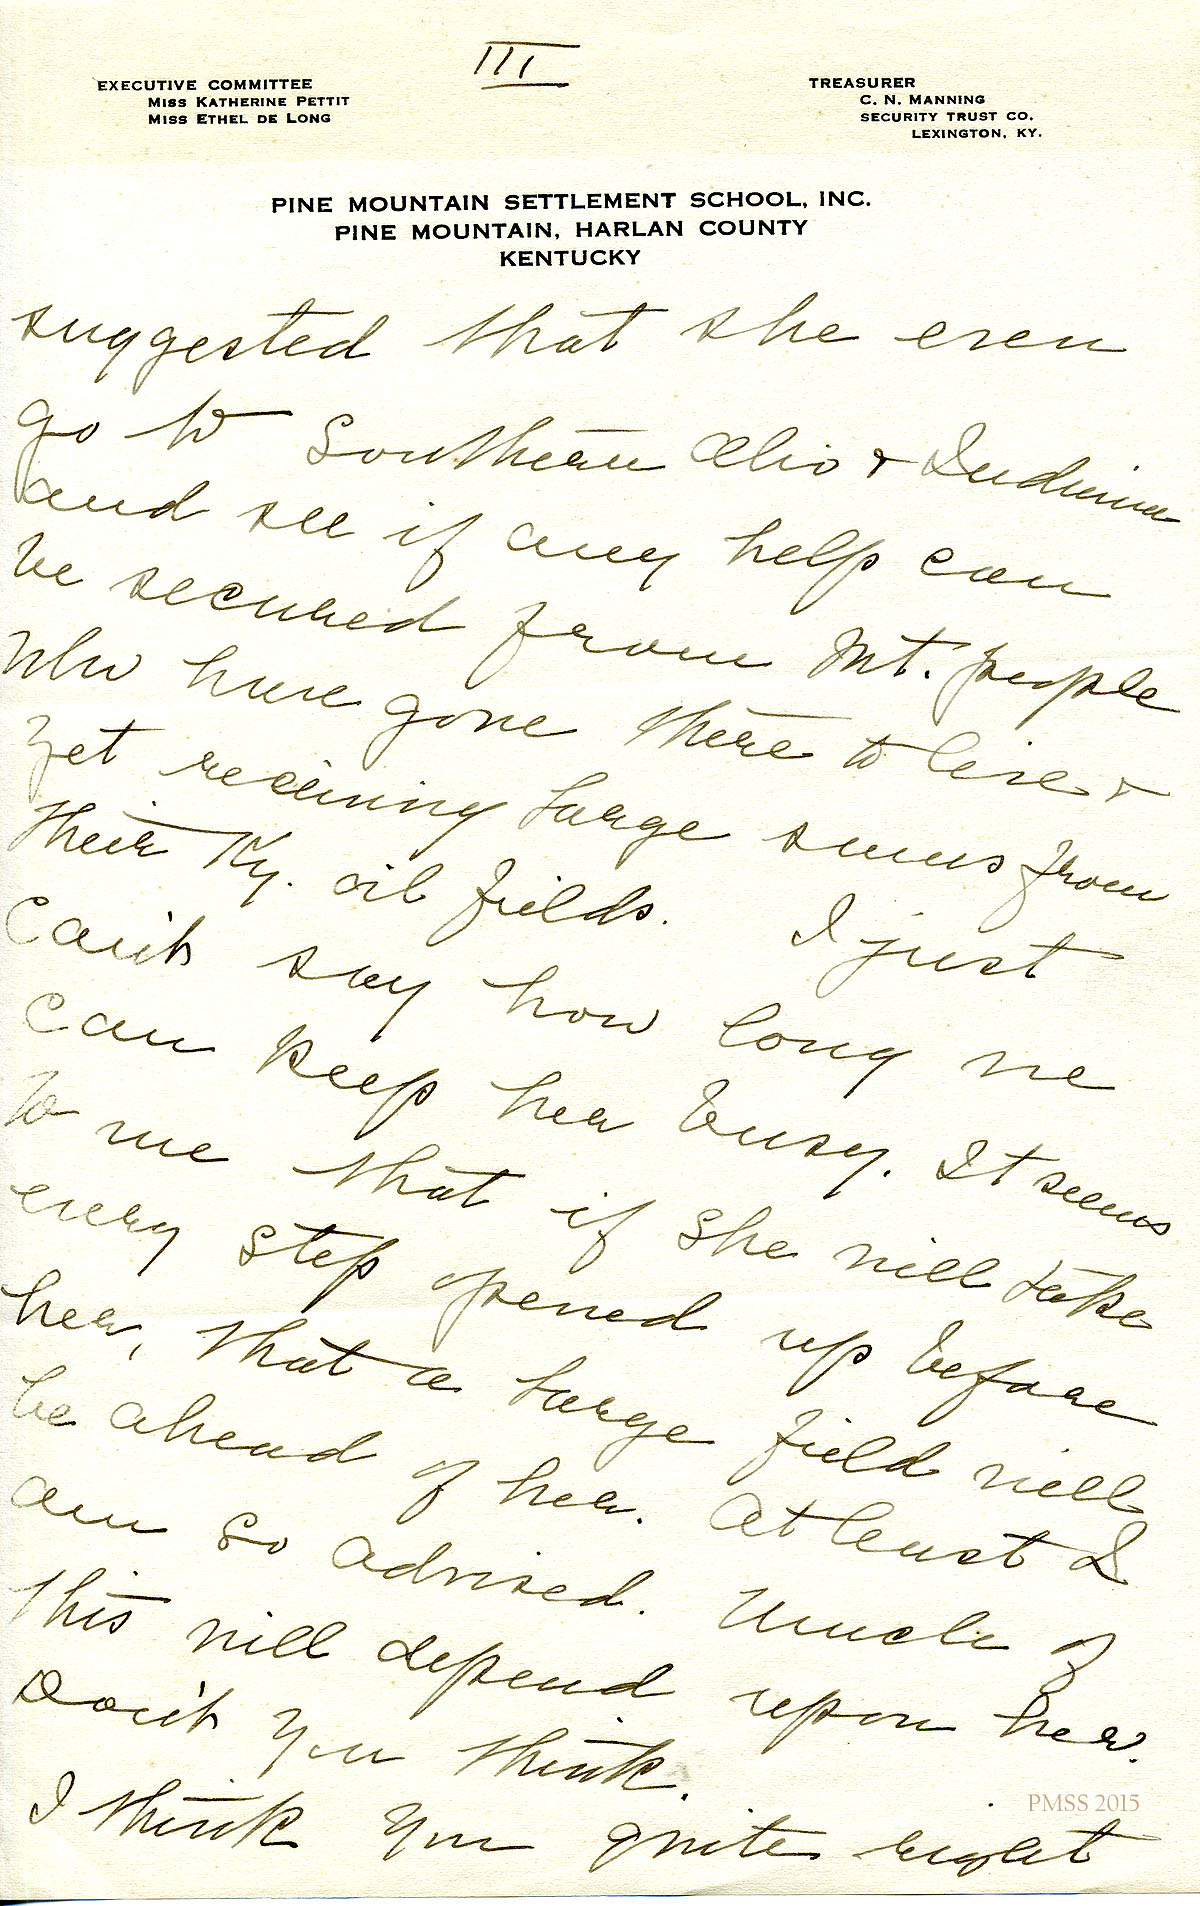 III
EXECUTIVE COMMITTEE
MISS KATHERINE PETTIT
MISS ETHEL DE LONG
TREASURER
C. N. MANNING
SECURITY TRUST CO.
LEXINGTON, KY.
PINE MOUNTAIN SETTLEMENT SCHOOL, INC.
PINE MOUNTAIN, HARLAN COUNTY
KENTUCKY
suggested that she even
go to Southern Ohio & Indiana
and see if any help can
be secured from Mt. people
who have gone there to live &
yet receiving large sums from
their Ky. oil fields. I just
can't say how long we
can keep her busy. It seems
to me that if she will take
every step opened up before
her, that a large field will
be ahead of her. At least I
am so advised. Much of
this will depend upon her.
Don't you think.
I think you quite right
PMSS 2015